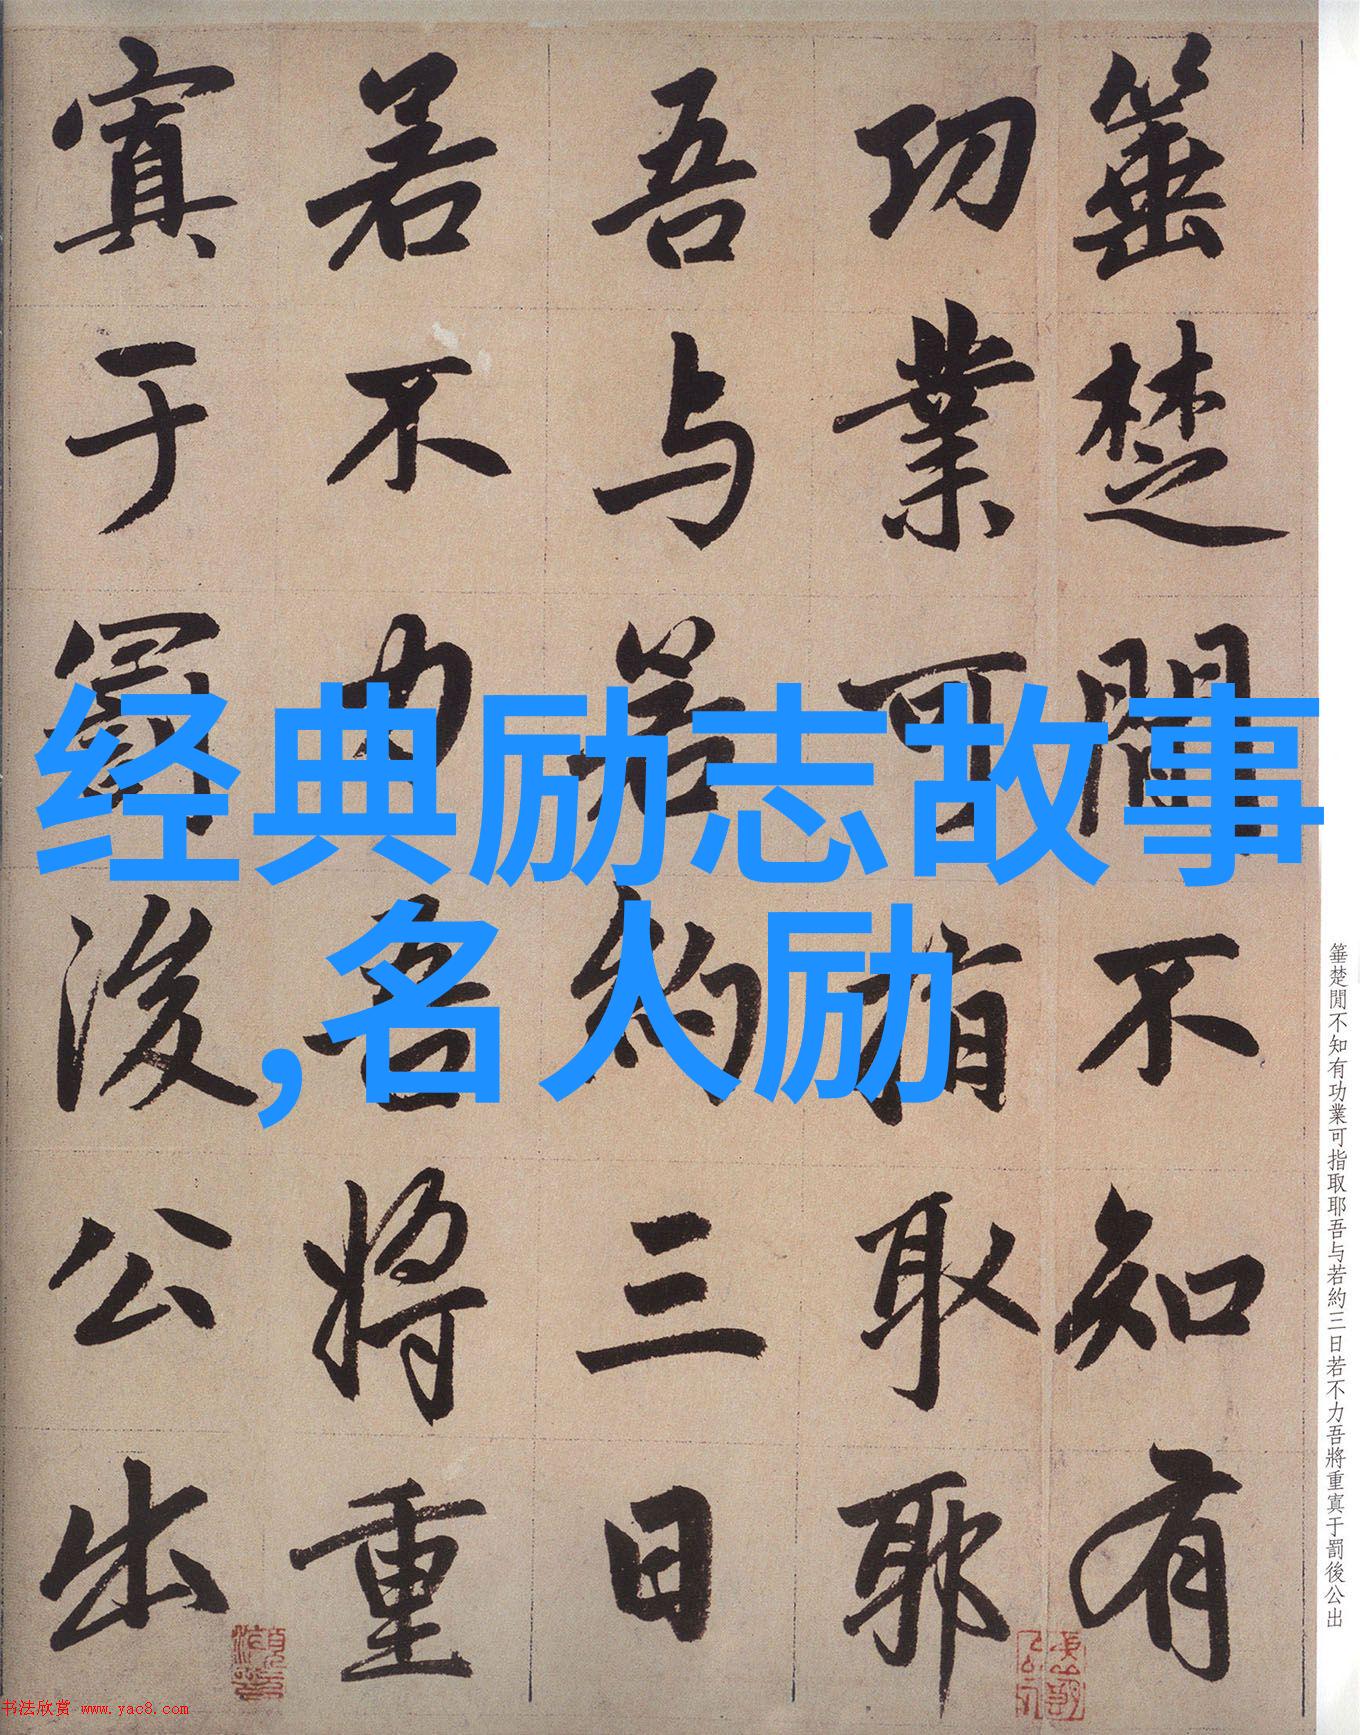 箠楚間不知有
功業可指取耶
吾与若約三日
若不力吾將重
寘于罰後公出
经典励志故事
,名人励
箠楚間不知有功業可指取耶吾与若約三日若不力吾將重寘于罰後公出
书法欣赏 www.yac8.com